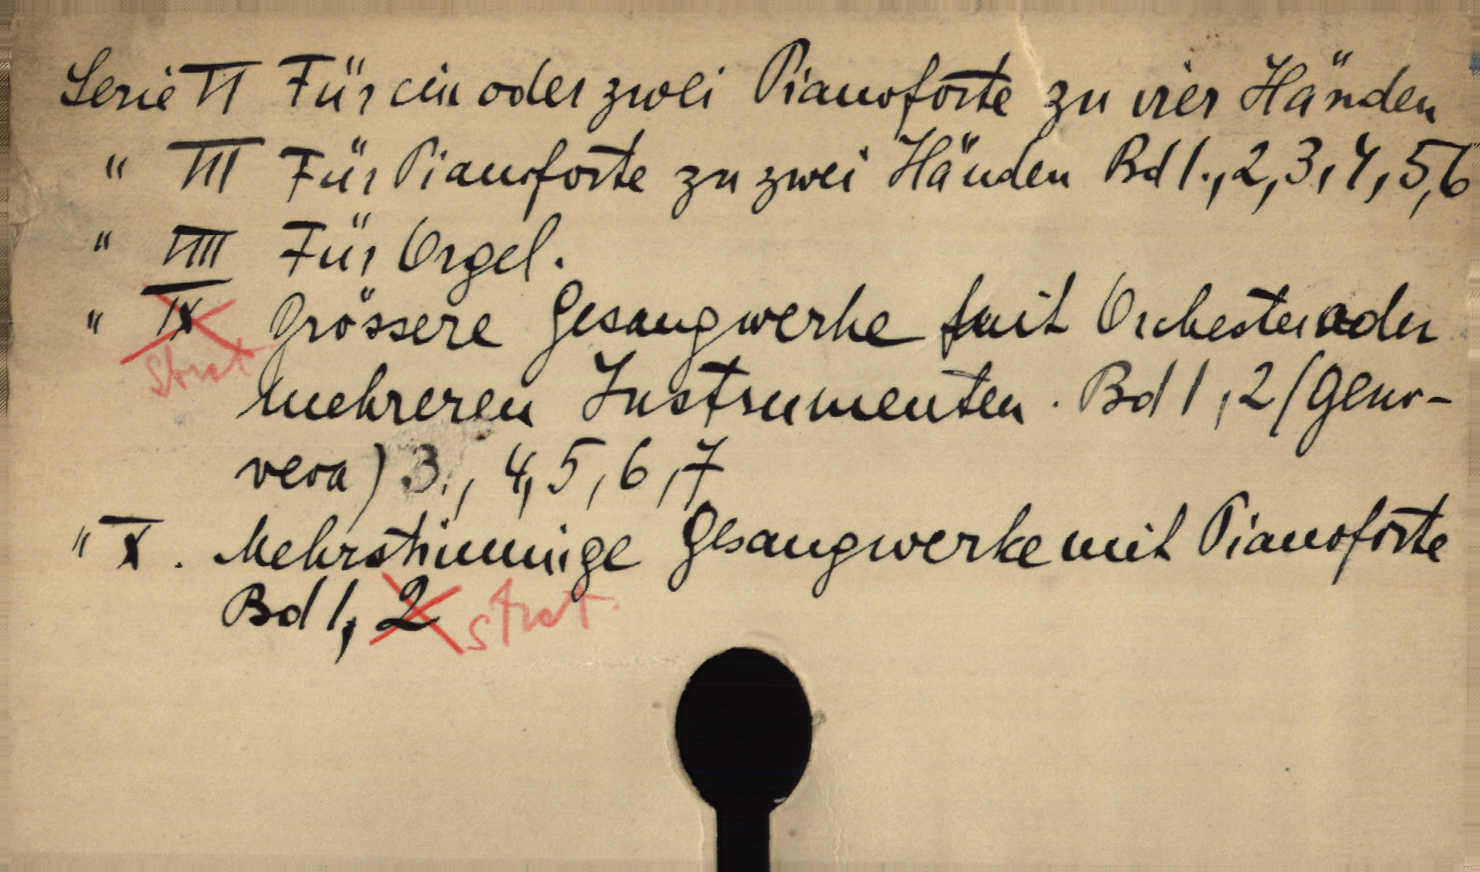 Serie VI Für ein oder zwei Pianoforte zu vier Händen
" VII Für Pianoforte zu zwei Händen Bd 1., 2, 3, 4, 5, 6
" VIII Für Orgel.
" IX Grössere Gesangwerke mit Orchester oder
strat
mehreren Instrumenten. Bd 1, 2 (Geno-
veva) 3., 4, 5, 6, 7
" X. Mehrstimmige Gesangwerke mit Pianoforte
Bd 1, 2 strat.